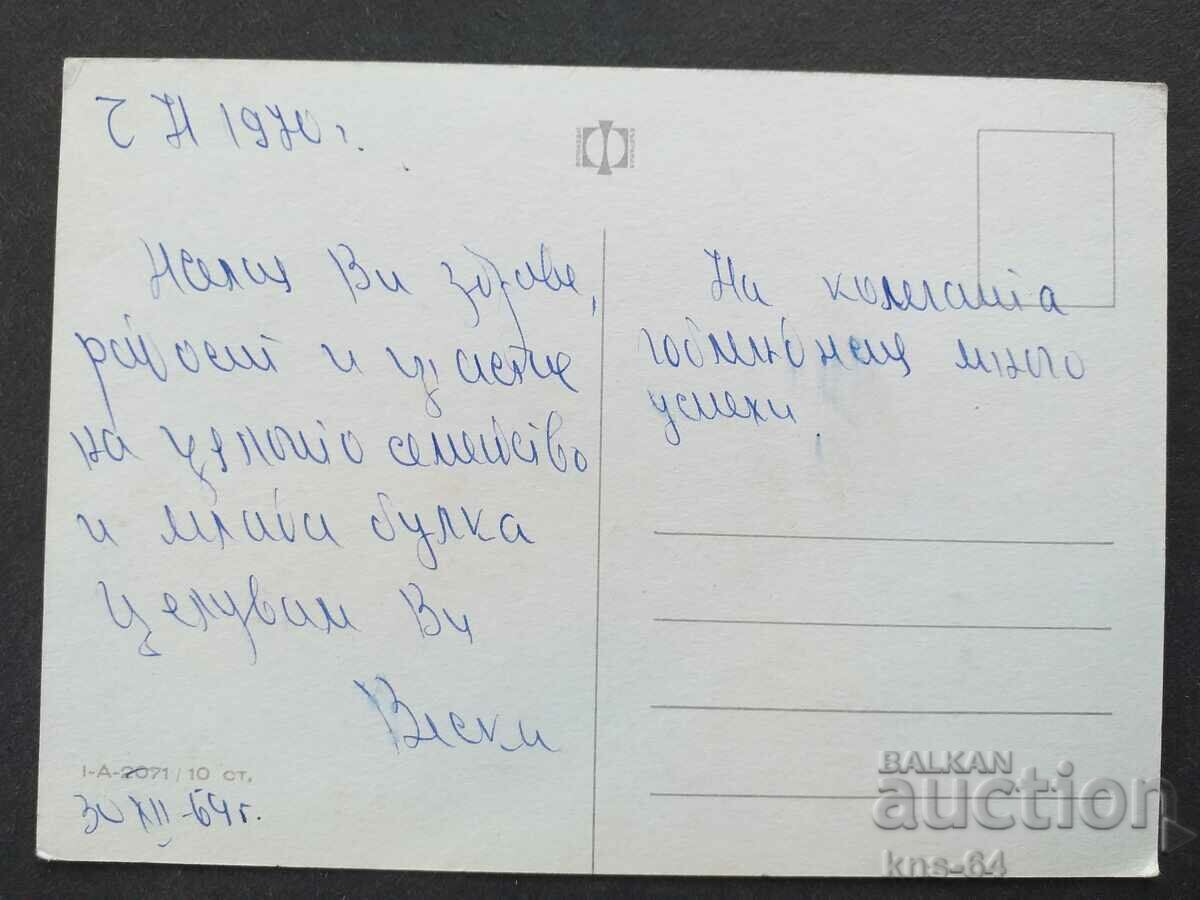 Ч Н 1970 г.
Желая Ви здраве,
радост и щастие
на цялото семейство
и млада булка
Целувам Ви
I-A-2071/10 ст.
30 XII-69 г.
На колегата
много
успехи
BALKAN
auction
kns-64